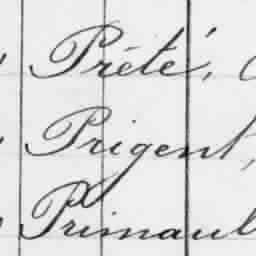 Prété,
Prigent,
Primault